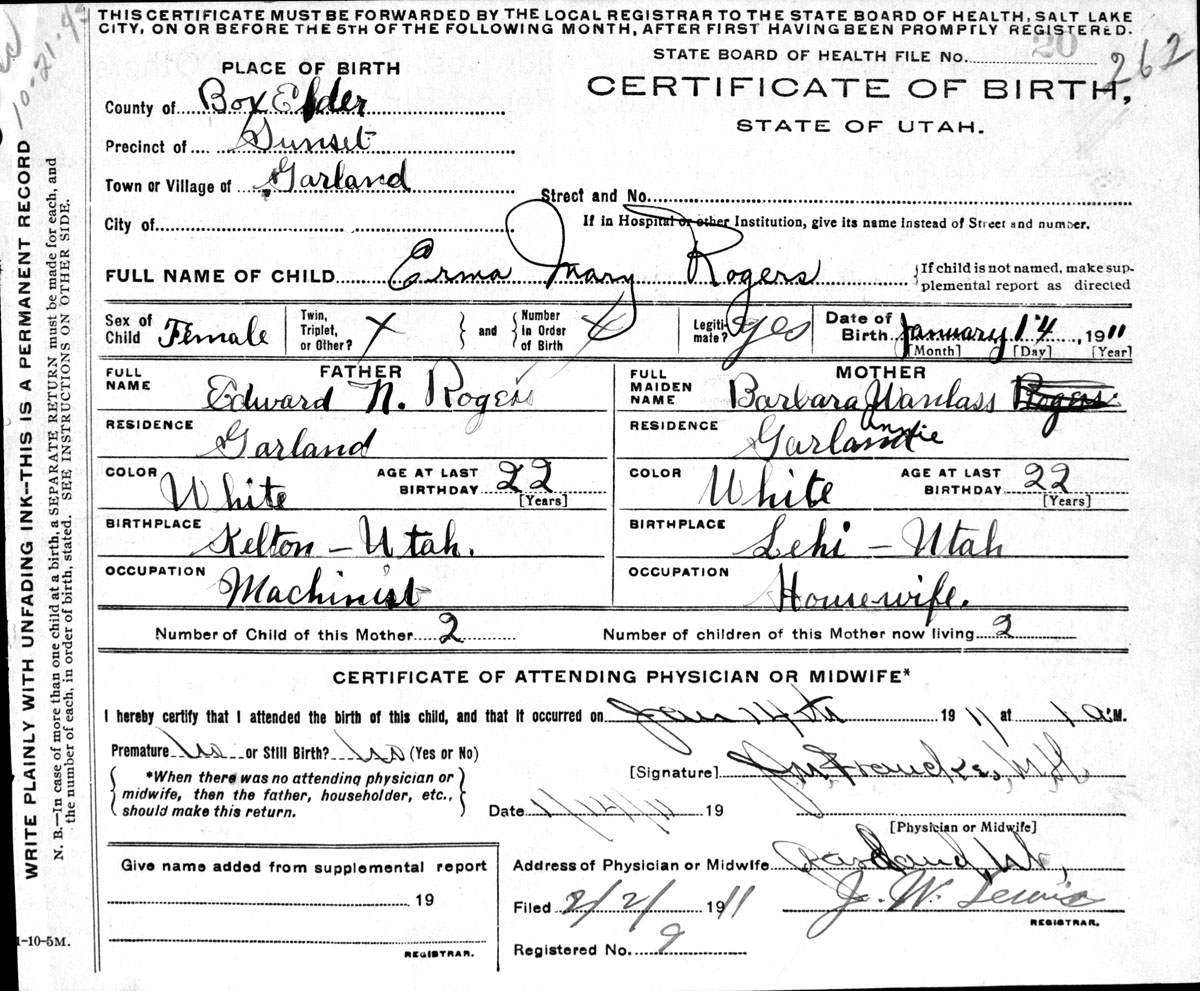 THIS CERTIFICATE MUST BE FORWARDED BY THE LOCAL REGISTRAR TO THE STATE BOARD OF HEALTH, SALT LAKE
CITY, ON OR BEFORE THE 5TH OF THE FOLLOWING MONTH, AFTER FIRST HAVING BEEN PROMPTLY REGISTERED.
10-21-4
20
262
STATE BOARD OF HEALTH FILE NO.
PLACE OF BIRTH
CERTIFICATE OF BIRTH,
STATE OF UTAH.
County of Box Elder
Precinct of Sunset
Town or Village of Garland
Street and No.
City of
If in Hospital or other Institution, give its name instead of Street and number.
FULL NAME OF CHILD Erma Mary Rogers
{If child is not named, make sup-
plemental report as directed
Sex of Child Female
Twin, Triplet, or Other? X
and
Number in Order of Birth X
Legiti- mate? Yes
Date of Birth January 14, 1911
[Month] [Day] [Year]
FATHER
FULL NAME Edward N. Rogers
RESIDENCE Garland
COLOR White
AGE AT LAST BIRTHDAY 22
[Years]
BIRTHPLACE Kelton - Utah.
OCCUPATION Machinist
MOTHER
FULL MAIDEN NAME Barbara Wanlass Rogers
Annie
RESIDENCE Garland
COLOR White
AGE AT LAST BIRTHDAY 22
[Years]
BIRTHPLACE Lehi - Utah
OCCUPATION Housewife.
Number of Child of this Mother 2
Number of children of this Mother now living 2
CERTIFICATE OF ATTENDING PHYSICIAN OR MIDWIFE*
I hereby certify that I attended the birth of this child, and that it occurred on Jan 14th 1911 at 1 a.M.
Premature No or Still Birth? No (Yes or No)
{*When there was no attending physician or
midwife, then the father, householder, etc.,
should make this return.}
[Signature]
Date 1/14/11 19
[Physician or Midwife]
Give name added from supplemental report
19
REGISTRAR.
Address of Physician or Midwife Garland, Ut,
Filed 2/2/ 1911
J. W. Lewis
REGISTRAR.
Registered No. 9
1-10-5M.
WRITE PLAINLY WITH UNFADING INK--THIS IS A PERMANENT RECORD
N. B.—In case of more than one child at a birth, a SEPARATE RETURN must be made for each, and
the number of each, in order of birth, stated. SEE INSTRUCTIONS ON OTHER SIDE.